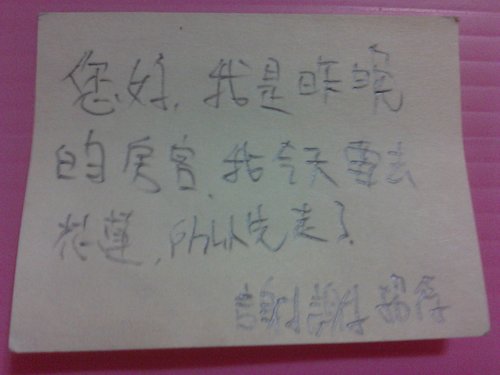 您好,我是昨晚
的房客,我今天要去
花蓮,所以先走了.
謝謝